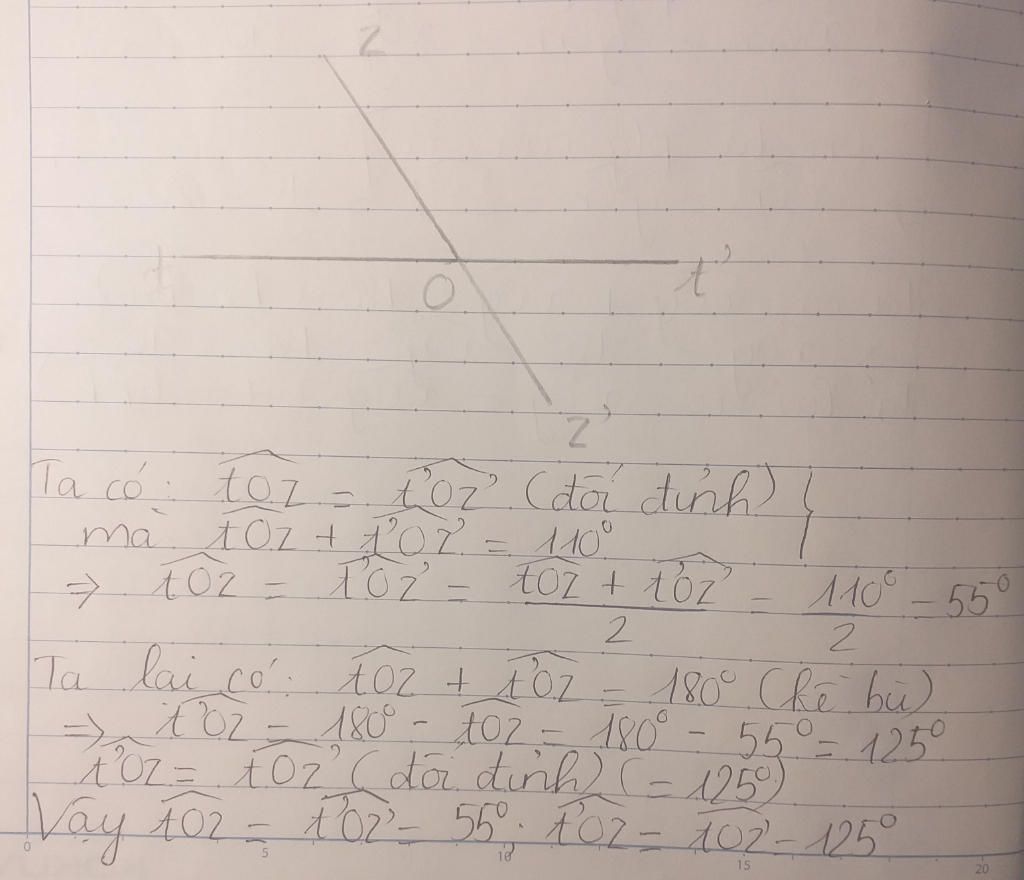 z
t
O
t'
z'
Ta có: tOz = t'Oz' (đối đỉnh) }
mà tOz + t'Oz' = 110°
=> tOz = t'Oz' = (tOz + t'Oz')/2 = 110°/2 = 55°
Ta lại có: tOz + t'Oz = 180° (kề bù)
=> t'Oz = 180° - tOz = 180° - 55° = 125°
t'Oz = tOz' (đối đỉnh) (= 125°)
Vậy tOz = t'Oz' = 55°. t'Oz = tOz' = 125°
0 5 10 15 20